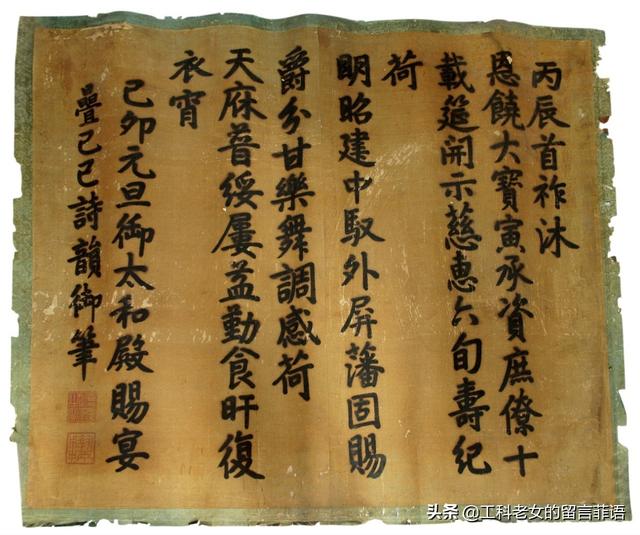 丙辰首祚沐
恩饒大寶寅承資庶僚十
載筵開示慈惠六旬壽紀
荷
明昭建中馭外屏藩固賜
爵分甘樂舞調感荷
天庥普綏屢益勤食旰復
衣宵
己卯元旦御太和殿賜宴
疊己巳詩韻御筆
头条 @工科老女的留言菲语